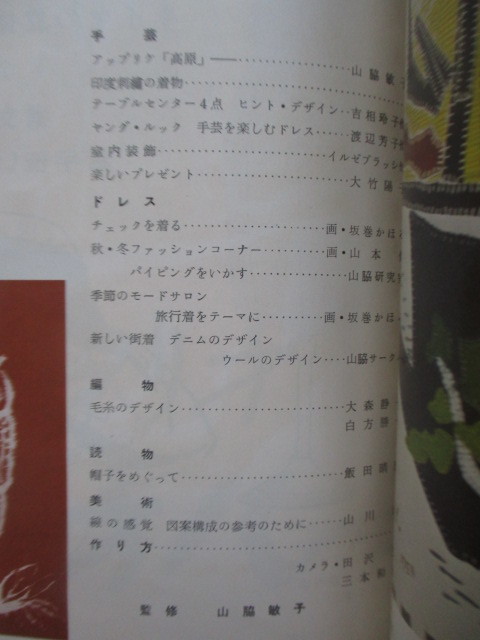 手芸
アップリケ「高原」――……………山脇敏子
印度刺繍の着物……………………
テーブルセンター4点 ヒント・デザイン…吉相玲子
ヤング・ルック 手芸を楽しむドレス……渡辺芳子
室内装飾……………………イルゼブラッシ
楽しいプレゼント……………………大竹陽
ドレス
チェックを着る……………………画・坂巻かほ
秋・冬ファッションコーナー…………画・山本
パイピングをいかす………………山脇研究
季節のモードサロン
旅行着をテーマに…………画・坂巻かほ
新しい街着 デニムのデザイン
ウールのデザイン……山脇サークー
編物
毛糸のデザイン……………………大森静
白方勝
読物
帽子をめぐって……………………飯田晴
美術
線の感覚 図案構成の参考のために……山川
作り方……………………
カメラ・田沢
三本和
監修 山脇敏子